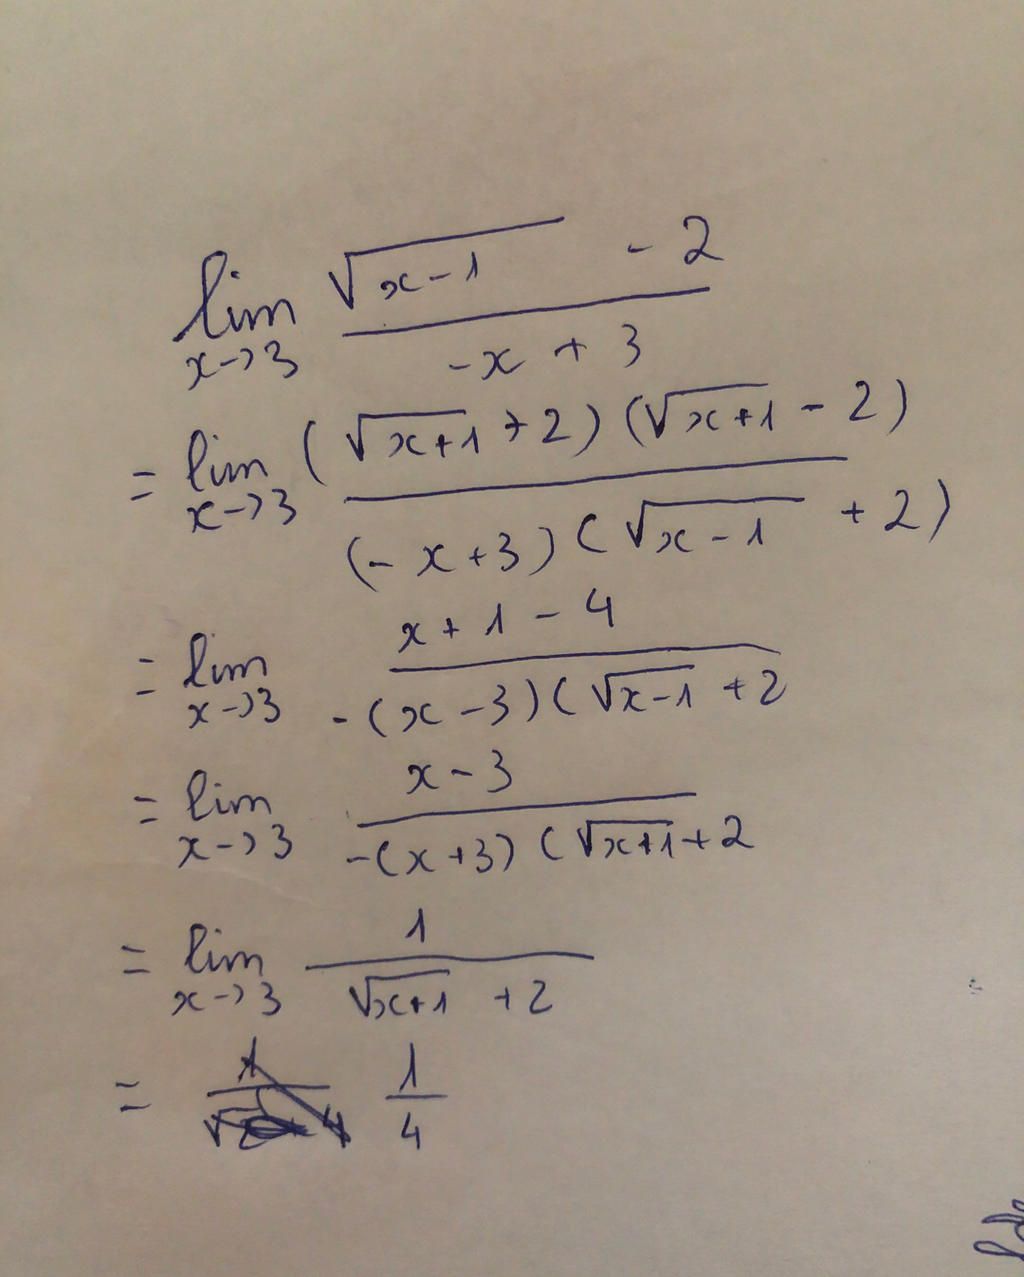 lim x→3 (√(x-1) - 2)/(-x + 3)
= lim x→3 ((√(x+1) + 2)(√(x+1) - 2))/((-x+3)(√(x-1) + 2))
= lim x→3 (x + 1 - 4)/(-(x-3)(√(x-1) + 2
= lim x→3 (x - 3)/(-(x+3)(√(x+1) + 2
= lim x→3 1/(√(x+1) + 2)
= 1/4